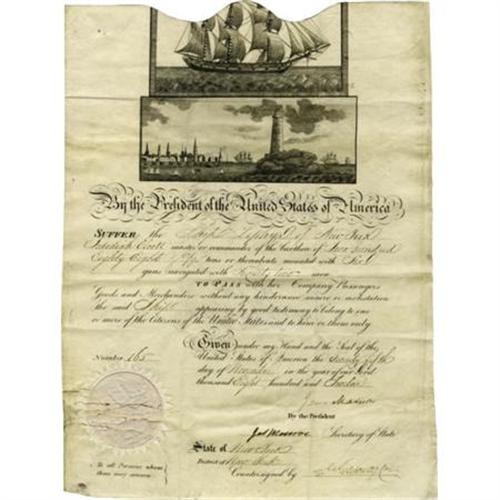 By the President of the United States of America
SUFFER the Ship of New York
master or commander of the burthen of Two hundred
Eighty Eight tons or thereabouts mounted with Six
guns navigated with men
TO PASS with her Company Passengers
Goods and Merchandize without any hinderance seisure or molestation
the said Ship appearing by good testimony to belong to one
or more of the Citizens of the United States and to him or them only
Given under my Hand and the Seal of the
Number 165 United States of America the
day of November in the year of our Lord
thousand Eight hundred and twelve
James Madison
By the President
Jas Monroe Secretary of State
State of New York
District of New York
To all Persons whom Countersigned by
these may concern